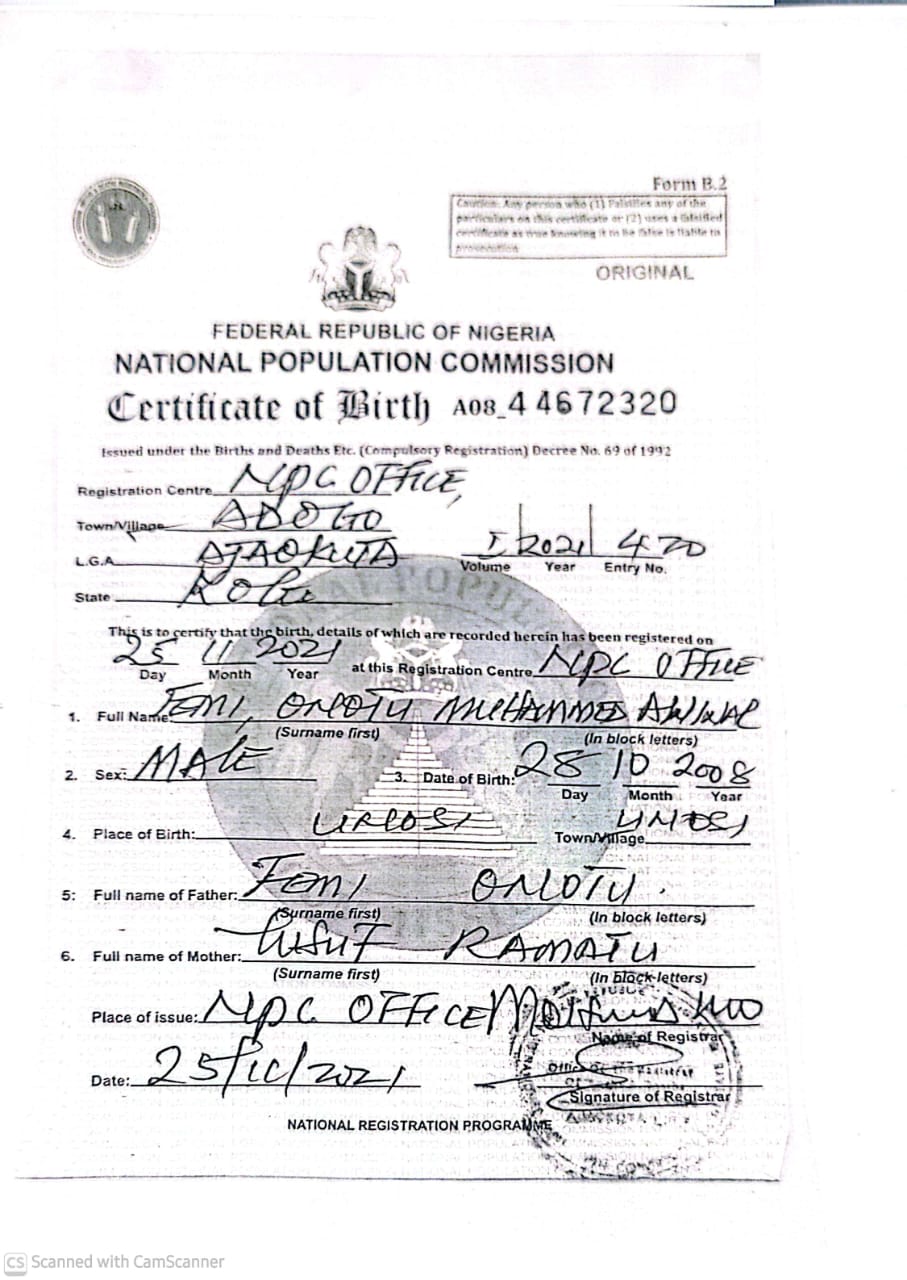 Form B.2
Caution: Any person who (1) Falsifies any of the
particulars on this certificate or (2) uses a falsified
certificate as true knowing it to be false is liable to
prosecution
ORIGINAL
FEDERAL REPUBLIC OF NIGERIA
NATIONAL POPULATION COMMISSION
Certificate of Birth A08_44672320
Issued under the Births and Deaths Etc. (Compulsory Registration) Decree No. 69 of 1992
Registration Centre NPC OFFICE,
Town/Village ADOGO
L.G.A AJAOKUTA I 2021 470
Volume Year Entry No.
State KOGI
This is to certify that the birth, details of which are recorded herein has been registered on
25 11 2021 at this Registration Centre NPC OFFICE
Day Month Year
1. Full Name: FEMI, ONOTU MUHAMMED AWWAL
(Surname first) (In block letters)
2. Sex: MALE 3. Date of Birth: 28 10 2008
Day Month Year
4. Place of Birth: Town/Village
5: Full name of Father: FEMI ONOTU
(Surname first) (In block letters)
6. Full name of Mother: YUSUF RAMATU
(Surname first) (In block letters)
Place of issue: NPC OFFICE
Name of Registrar
Date: 25/11/2021
Office of the Registrar
Signature of Registrar
NATIONAL REGISTRATION PROGRAMME
CS Scanned with CamScanner